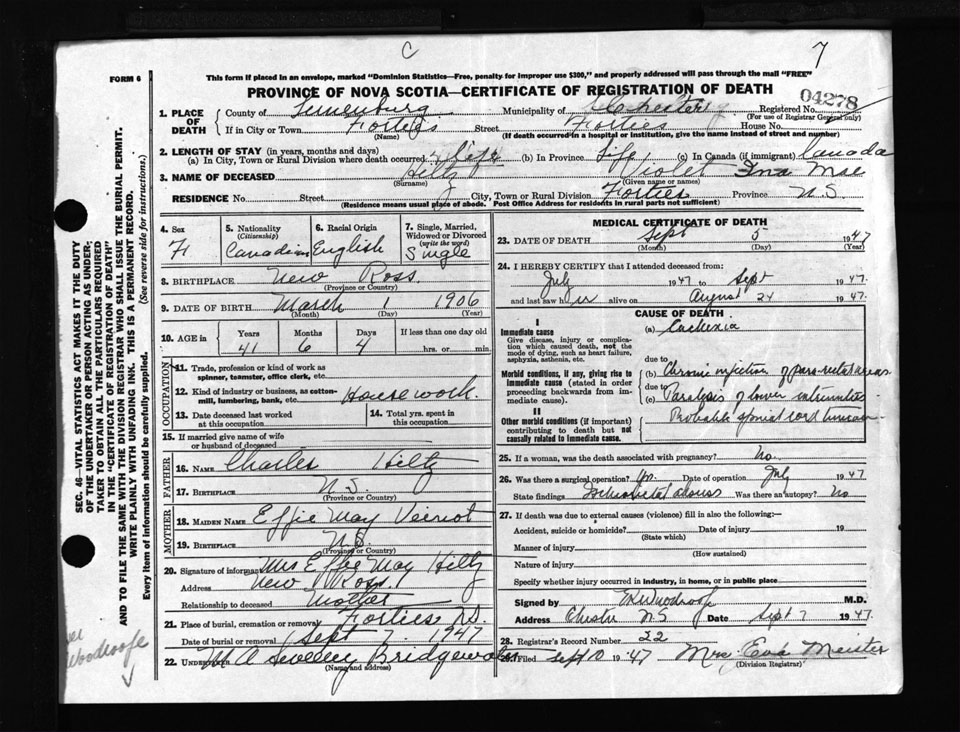 C
7
FORM 6
This form if placed in an envelope, marked "Dominion Statistics—Free, penalty for improper use $300," and properly addressed will pass through the mail "FREE"
PROVINCE OF NOVA SCOTIA—CERTIFICATE OF REGISTRATION OF DEATH
04278
1. PLACE OF DEATH County of Lunenburg Municipality of Chester Registered No.
(For use of Registrar General only)
If in City or Town Forties Street Forties House No.
(Name) (If death occurred in a hospital or institution, give the name instead of street and number)
2. LENGTH OF STAY (in years, months and days)
(a) In City, Town or Rural Division where death occurred Life (b) In Province Life (c) In Canada (if immigrant) Canada
3. NAME OF DECEASED Hiltz Violet Ina Mae
(Surname) (Given name or names)
RESIDENCE No. Street City, Town or Rural Division Forties Province N.S.
(Residence means usual place of abode. Post Office Address for residents in rural parts not sufficient)
4. Sex 5. Nationality (Citizenship) 6. Racial Origin 7. Single, Married, Widowed or Divorced (write the word)
F Canadian English Single
8. BIRTHPLACE New Ross.
(Province or Country)
9. DATE OF BIRTH March 1 1906
(Month) (Day) (Year)
10. AGE in Years Months Days If less than one day old
41 6 4 hrs. or min.
OCCUPATION
11. Trade, profession or kind of work as spinner, teamster, office clerk, etc.
12. Kind of industry or business, as cotton-mill, lumbering, bank, etc. Housework.
13. Date deceased last worked at this occupation 14. Total yrs. spent in this occupation
15. If married give name of wife or husband of deceased
FATHER
16. NAME Charles Hiltz
17. BIRTHPLACE N.S.
(Province or Country)
MOTHER
18. MAIDEN NAME Effie May Veinot
19. BIRTHPLACE N.S.
(Province or Country)
20. Signature of informant Mrs Effie May Hiltz
Address New Ross.
Relationship to deceased Mother
21. Place of burial, cremation or removal Forties N.S.
Date of burial or removal Sept 7. 1947
22. UNDERTAKER Bridgewater
(Name and address)
MEDICAL CERTIFICATE OF DEATH
23. DATE OF DEATH Sept 5 1947
(Month) (Day) (Year)
24. I HEREBY CERTIFY that I attended deceased from:
July 1947 to Sept 1947.
and last saw her alive on August 24 1947.
CAUSE OF DEATH
I
Immediate cause (a) Cachexia
Give disease, injury or complication which caused death, not the mode of dying, such as heart failure, asphyxia, asthenia, etc.
due to
Morbid conditions, if any, giving rise to immediate cause (stated in order proceeding backwards from immediate cause). (b) Chronic infection of para-rectal areas
due to
(c) Paralysis of lower extremities
II
Other morbid conditions (if important) contributing to death but not causally related to immediate cause. Probable spinal cord tumour
25. If a woman, was the death associated with pregnancy? No.
26. Was there a surgical operation? Yes. Date of operation July 1947
State findings Ischiorectal abscess Was there an autopsy? No
27. If death was due to external causes (violence) fill in also the following:—
Accident, suicide or homicide? Date of injury 19
(State which)
Manner of injury
(How sustained)
Nature of injury
Specify whether injury occurred in industry, in home, or in public place
Signed by Woodroofe M.D.
Address Chester N S Date Sept 7 1947.
28. Registrar's Record Number 22
Filed Sept 10 1947 Mrs. Eva Meister
(Division Registrar)
SEC. 46—VITAL STATISTICS ACT MAKES IT THE DUTY
OF THE UNDERTAKER OR PERSON ACTING AS UNDER-
TAKER TO OBTAIN ALL THE PARTICULARS REQUIRED
IN THE "CERTIFICATE OF REGISTRATION OF DEATH"
AND TO FILE THE SAME WITH THE DIVISION REGISTRAR WHO SHALL ISSUE THE BURIAL PERMIT.
WRITE PLAINLY WITH UNFADING INK. THIS IS A PERMANENT RECORD.
Every item of information should be carefully supplied. (See reverse side for instructions.)
Woodroofe